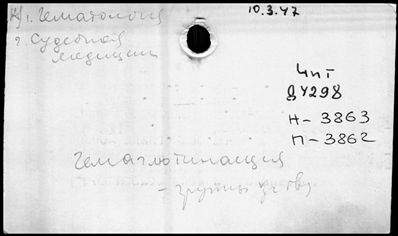 10.3.47
1. Гематология
2. Судебная
медицина
Чит
Д4298
Н-3863
П-3862
Гемагглютинация
- группы